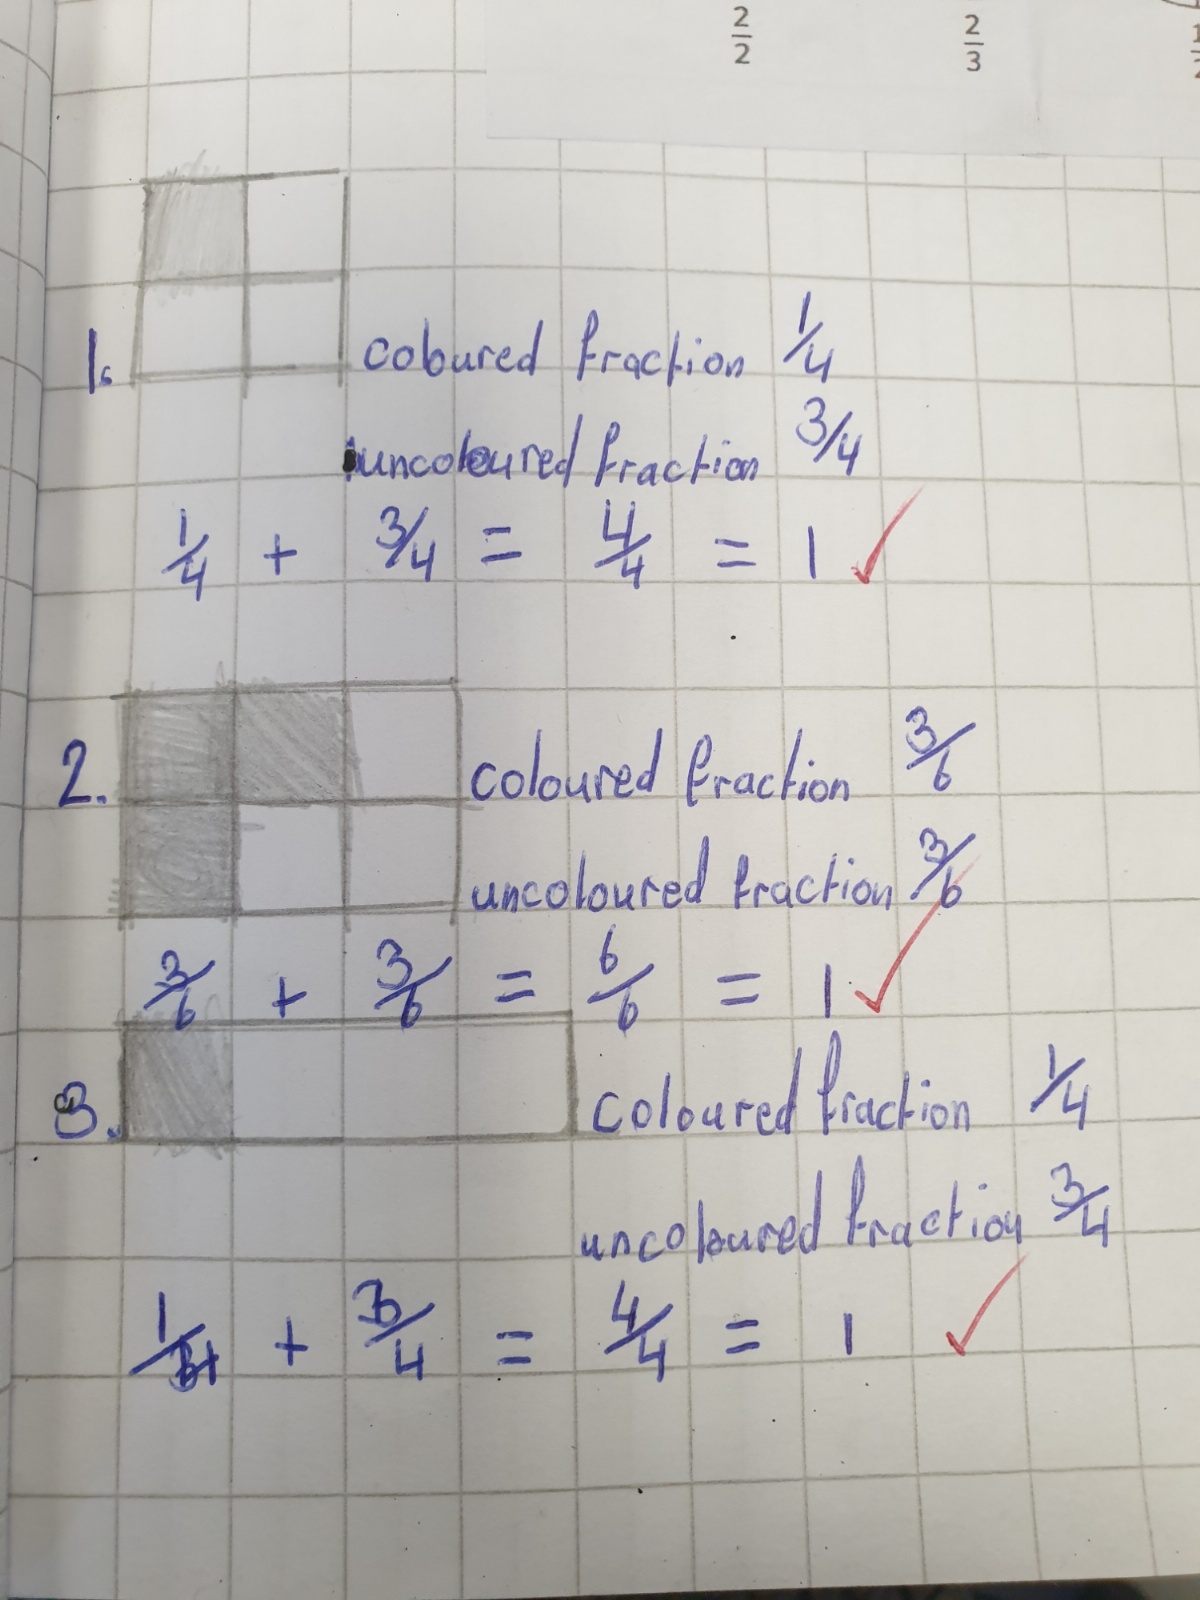 2/2 2/3
1. coloured fraction 1/4
uncoloured fraction 3/4
1/4 + 3/4 = 4/4 = 1
2. coloured fraction 3/6
uncoloured fraction 3/6
3/6 + 3/6 = 6/6 = 1
3. coloured fraction 1/4
uncoloured fraction 3/4
1/4 + 3/4 = 4/4 = 1